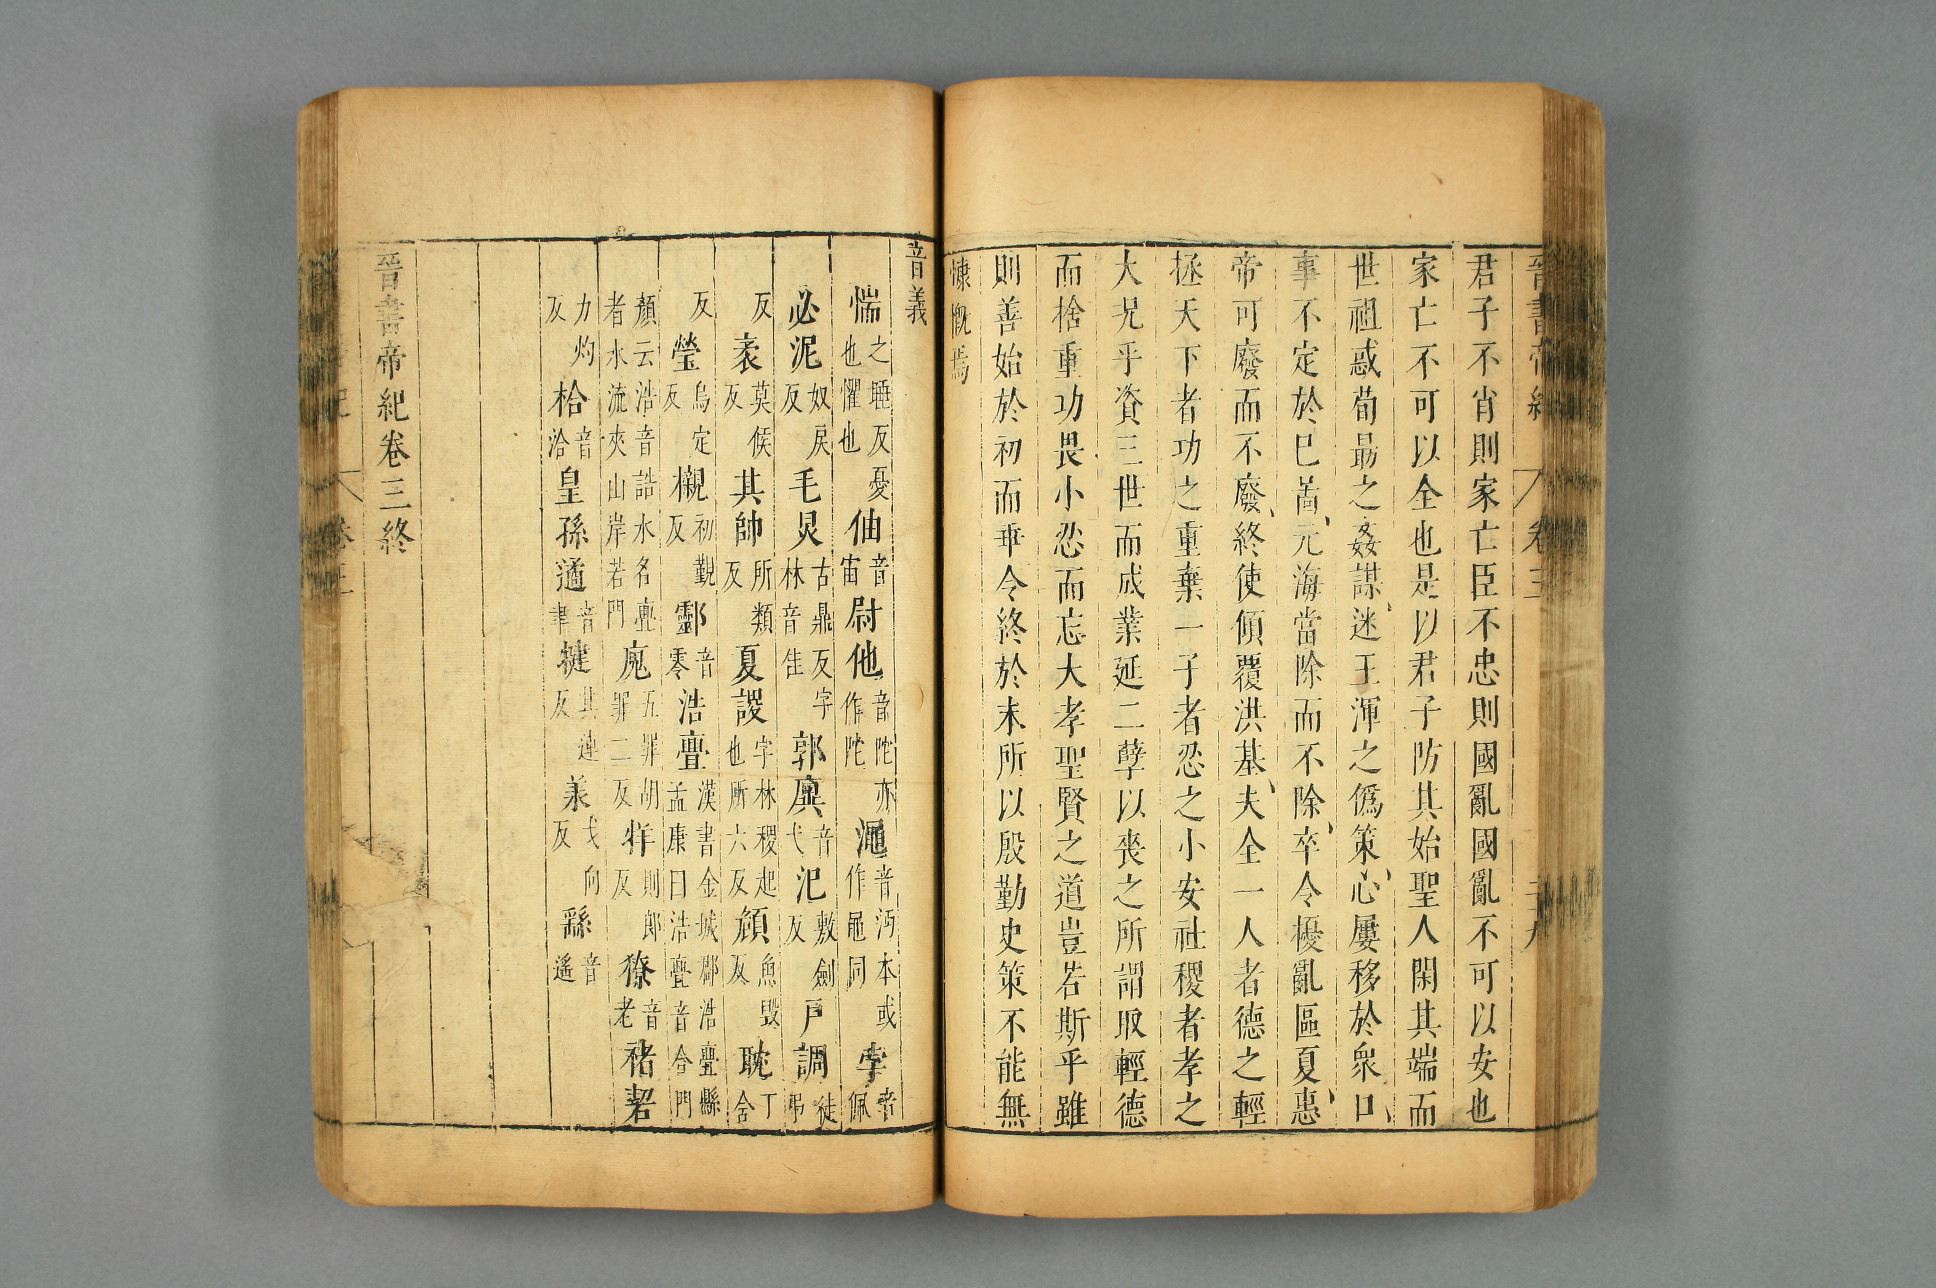 晉書帝紀 卷三
君子不肖則家亡臣不忠則國亂國亂不可以安也
家亡不可以全也是以君子防其始聖人閑其端而
世祖惑荀勗之姦謀迷王渾之僞策心屢移於衆口
事不定於已啚元海當除而不除卒令擾亂區夏惠
帝可廢而不廢終使傾覆洪基夫全一人者德之輕
拯天下者功之重棄一子者忍之小安社稷者孝之
大況乎資三世而成業延二孽以喪之所謂取輕德
而捨重功畏小忍而忘大孝聖賢之道豈若斯乎雖
則善始於初而乖令終於末所以殷勤史策不能無
慷慨焉
音義
惴之睡反憂也懼也 伷音宙 尉他音陀亦作陀 澠音沔本或作黽同 孛音佩
必泥奴戾反 毛炅古鼎反字林音隹 郭廙音弋 汜敷劍反 戶調徒弔
反 袤莫侯反 其帥所類反 夏謖字林稷起也所六反 頠魚毀反 耽丁含
反 瑩烏定反 櫬初覲反 酃音零 浩亹漢書金城郡浩亹縣孟康曰浩亹音合門
顏云浩音誥水名亹者水流夾山岸若門 廆五罪胡罪二反 牂則郎反 獠音老 褚䂮
力灼反 袷音洽 皇孫遹音聿 犍其連反 羕弋向反 繇音遙
晉書帝紀卷三終